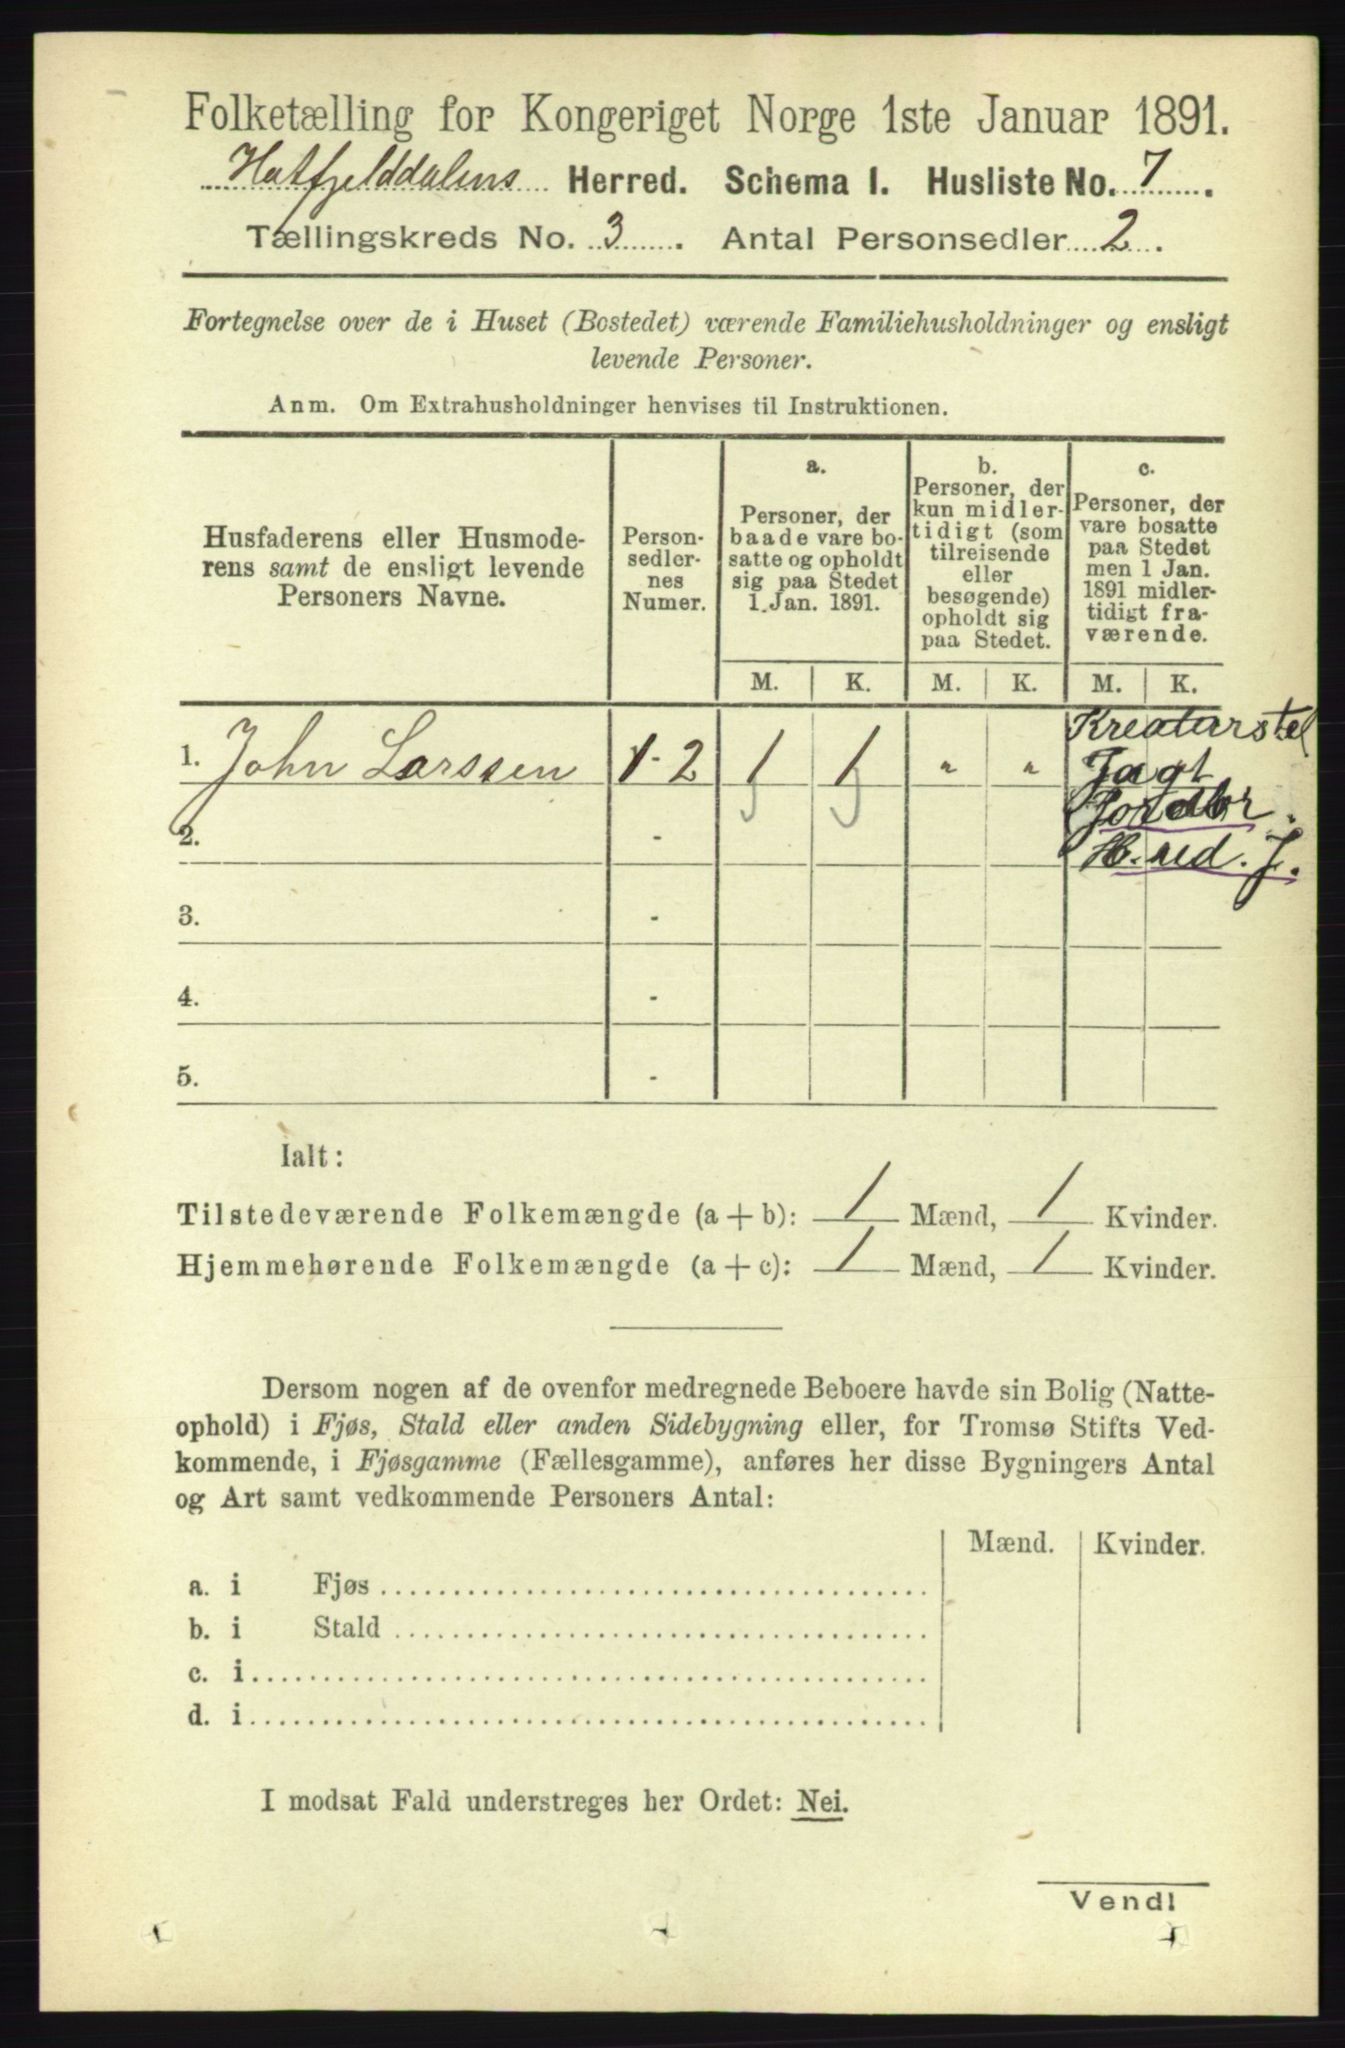 Folketælling for Kongeriget Norge 1ste Januar 1891.
Hatfjelddalens Herred. Schema I. Husliste No. 7.
Tællingskreds No. 3. Antal Personsedler 2.
Fortegnelse over de i Huset (Bostedet) værende Familiehusholdninger og ensligt
levende Personer.
Anm. Om Extrahusholdninger henvises til Instruktionen.
Husfaderens eller Husmode-
rens samt de ensligt levende
Personers Navne.
Person-
sedler-
nes
Numer.
a.
Personer, der
baade vare bo-
satte og opholdt
sig paa Stedet
1. Jan. 1891.
b.
Personer, der
kun midler-
tidigt (som
tilreisende
eller
besøgende)
opholdt sig
paa Stedet.
c.
Personer, der
vare bosatte
paa Stedet
men 1 Jan.
1891 midler-
tidigt fra-
værende.
M. K. M. K. M. K.
1. John Larssen 1-2 1 1 " " Kreaturstel
Jagt
Jordbr.
2. -
H. ned. J.
3. -
4. -
5. -
Ialt:
Tilstedeværende Folkemængde (a + b): 1 Mænd, 1 Kvinder.
Hjemmehørende Folkemængde (a + c): 1 Mænd, 1 Kvinder.
Dersom nogen af de ovenfor medregnede Beboere havde sin Bolig (Natte-
ophold) i Fjøs, Stald eller anden Sidebygning eller, for Tromsø Stifts Ved-
kommende, i Fjøsgamme (Fællesgamme), anføres her disse Bygningers Antal
og Art samt vedkommende Personers Antal:
Mænd. Kvinder.
a. i Fjøs
b. i Stald
c. i
d. i
I modsat Fald understreges her Ordet: Nei.
Vend!